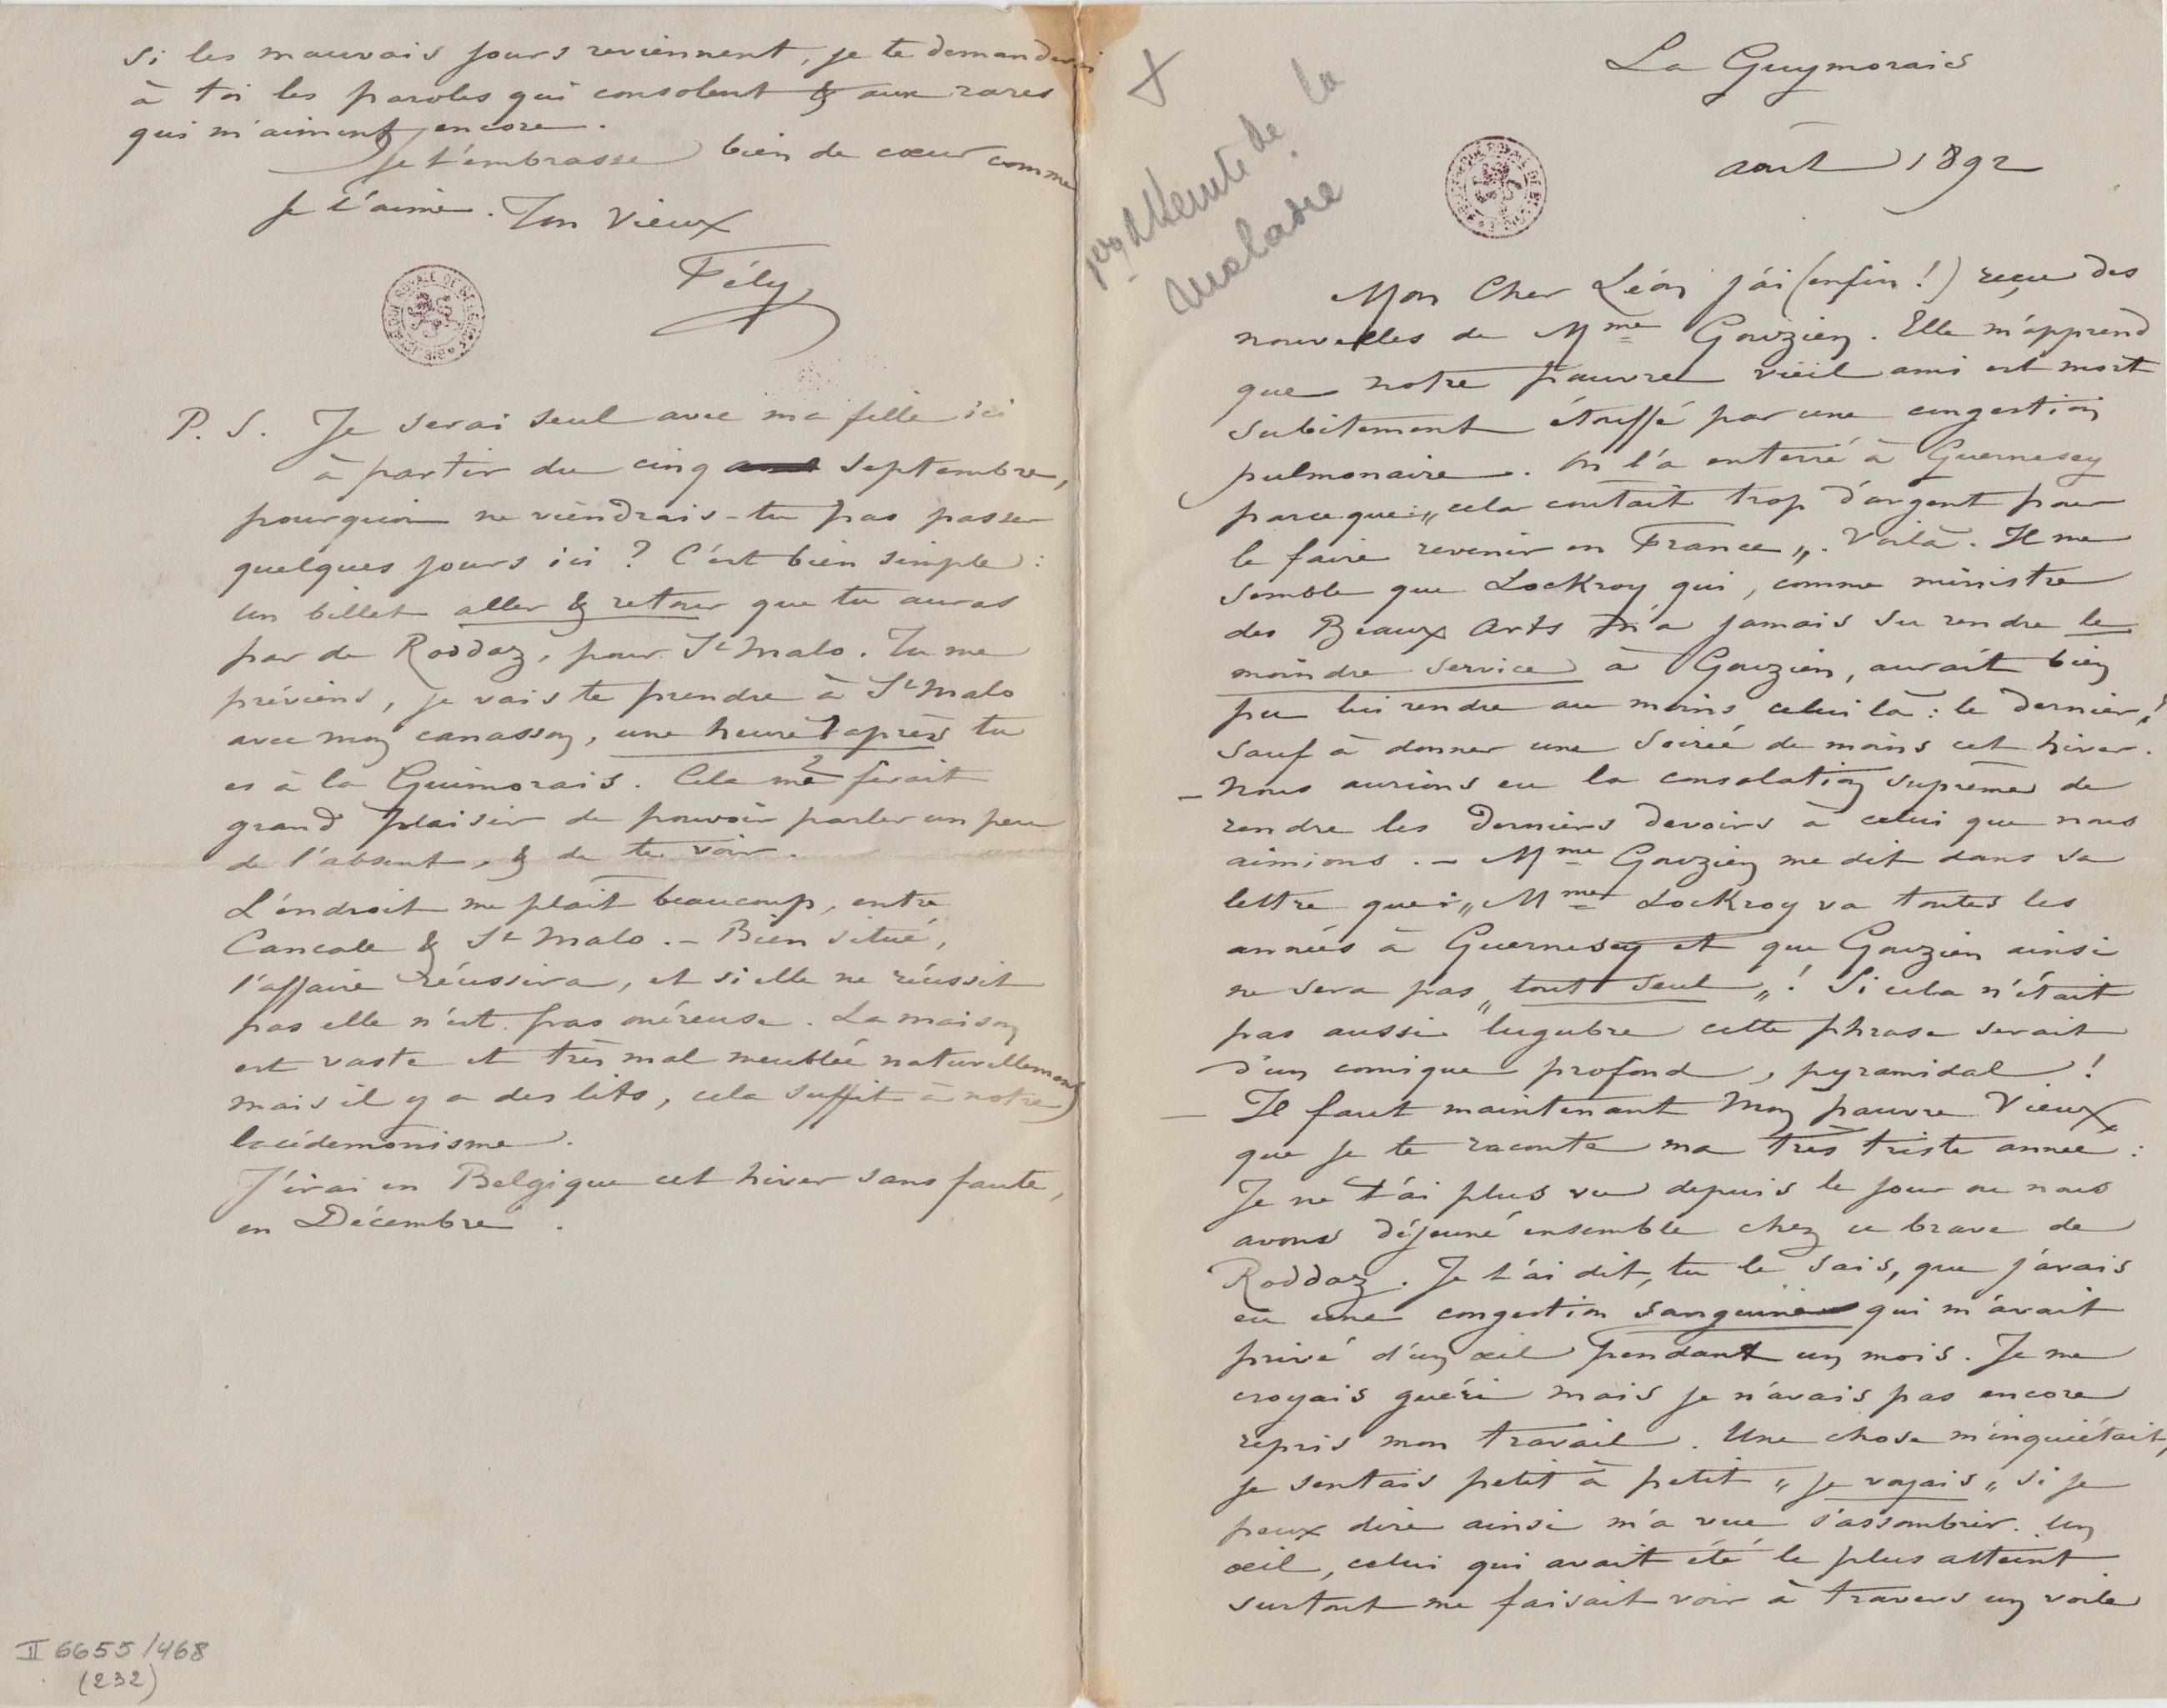 si les mauvais jours reviennent, je te demanderai
à toi les paroles qui consolent & aux rares
qui m'aiment encore.
Je t'embrasse bien de cœur comme
je t'aime. Ton vieux
Fély
P. S. Je serai seul avec ma fille ici
à partir du cinq septembre,
pourquoi ne viendrais-tu pas passer
quelques jours ici ? C'est bien simple :
un billet aller & retour que tu auras
par de Roddaz, pour St Malo. Tu me
préviens, je vais te prendre à St Malo
avec mon canasson, une heure ½ après tu
es à la Guimorais. Cela me ferait
grand plaisir de pouvoir parler un peu
de l'absent, & de te voir.
L'endroit me plait beaucoup, entre
Cancale & St Malo. – Bien situé,
l'affaire réussira, et si elle ne réussit
pas elle n'est pas onéreuse. La maison
est vaste et très mal meublée naturellement
mais il y a des lits, cela suffit à notre
lacédemonisme.
J'irai en Belgique cet hiver sans faute,
en Décembre.
II 6655/468
(232)
La Guymorais
août 1892
de la
maladie
Mon Cher Léon j'ai (enfin !) reçu des
nouvelles de Mme Gouzien. Elle m'apprend
que notre pauvre vieil ami est mort
subitement étouffé par une congestion
pulmonaire. On l'a enterré à Guernesey
parceque : „cela coutait trop d'argent pour
le faire revenir en France„. Voilà. Il me
semble que Lockroy qui, comme ministre
des Beaux Arts n'a jamais su rendre le
moindre service à Gouzien, aurait bien
pu lui rendre au moins celui là : le dernier,!
sauf à donner une soirée de moins cet hiver.
– Nous aurions eu la consolation suprême de
rendre les derniers devoirs à celui que nous
aimions. – Mme Gouzien me dit dans sa
lettre que : „Mme Lockroy va toutes les
années à Guernesey et que Gouzien ainsi
ne sera pas „tout seul„ ! Si cela n'était
pas aussi lugubre cette phrase serait
d'un comique profond, pyramidal !
– Il faut maintenant mon pauvre vieux
que je te raconte ma très triste année :
Je ne t'ai plus vu depuis le jour ou nous
avons déjeuné ensemble chez ce brave de
Roddaz. Je t'ai dit, tu le sais, que j'avais
eu une congestion sanguine qui m'avait
privé d'un œil pendant un mois. Je me
croyais guéri mais je n'avais pas encore
repris mon travail. Une chose m'inquiétait,
je sentais petit à petit „je voyais„ si je
peux dire ainsi m'a vue s'assombrir. Un
œil, celui qui avait été le plus atteint
surtout me faisait voir à travers un voile